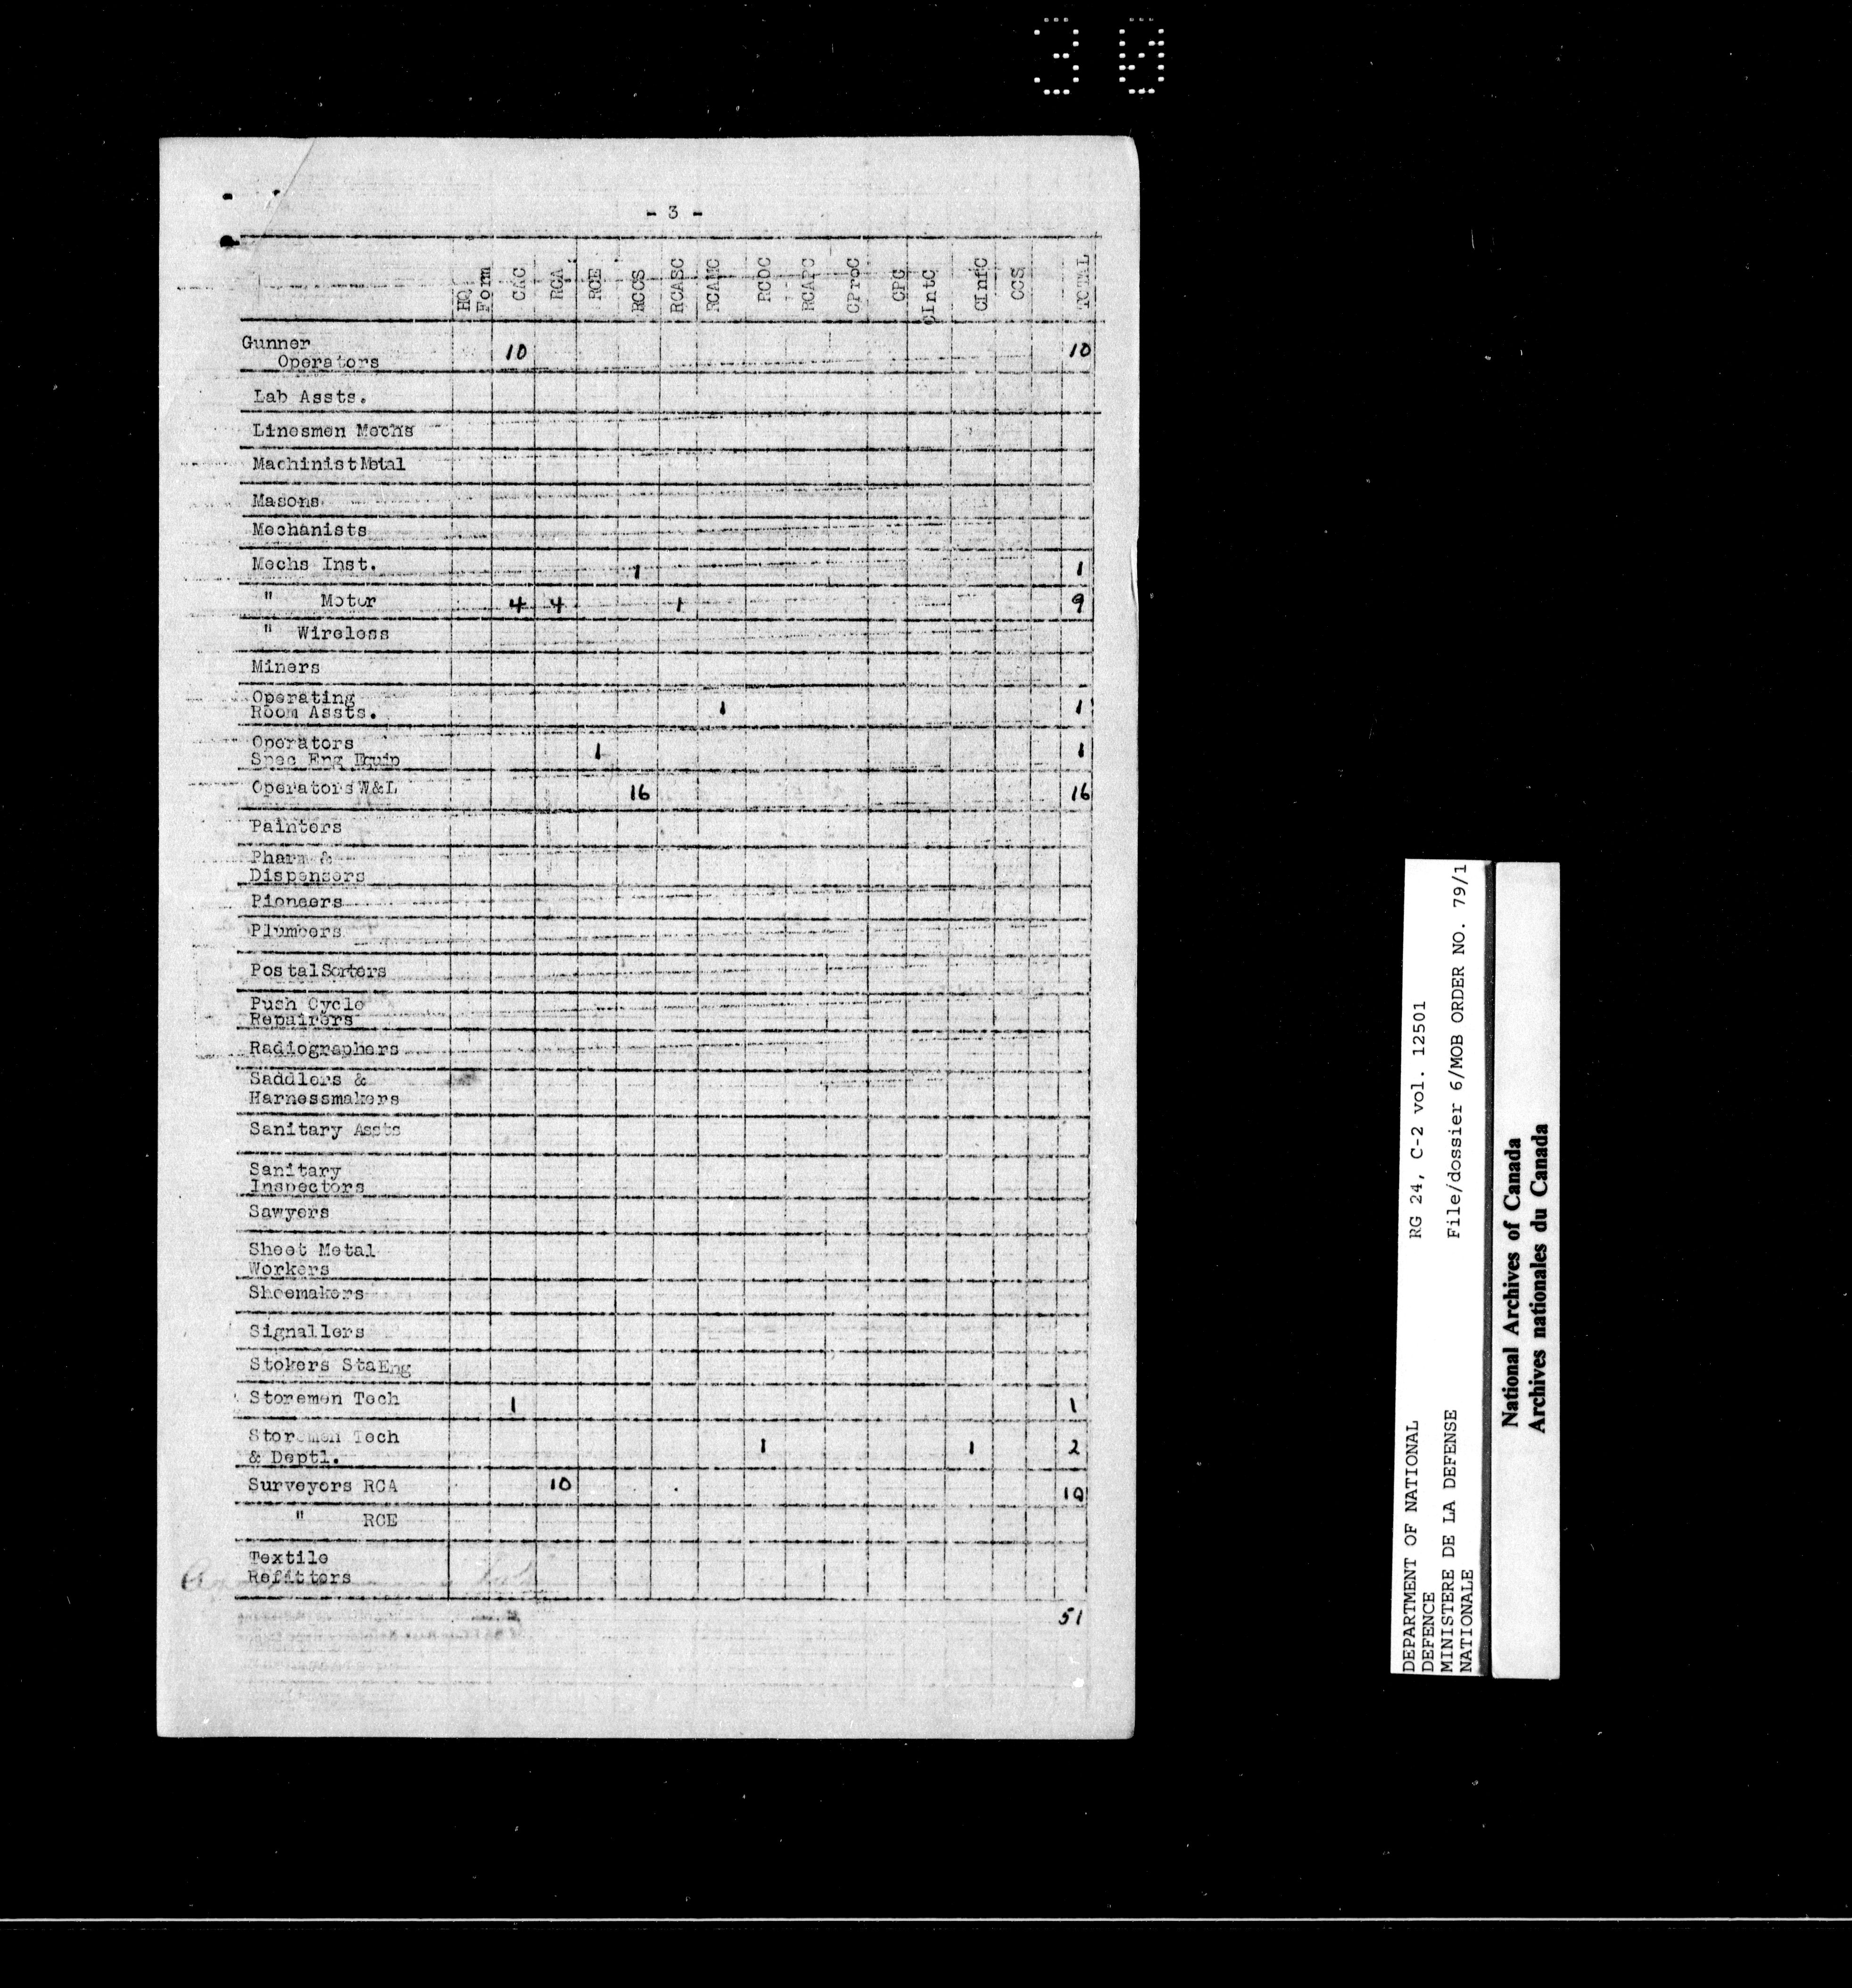 30
- 3 -
HQ Form CAC RCA RCE RCCS RCASC RCAMC RCOC RCAPC CProC CPC CIntC CInfC CCS TOTAL
Gunner 10 10
Operators
Lab Assts.
Linesmen Mechs
Machinist Metal
Masons
Mechanists
Mechs Inst. 1 1
" Motor 4 4 1 9
" Wireless
Miners
Operating
Room Assts. 1 1
Operators 1 1
Spec Eng Equip
Operators W&L 16 16
Painters
Pharm &
Dispensers
Pioneers
Plumbers
Postal Sorters
Push Cycle
Repairers
Radiographers
Saddlers &
Harnessmakers
Sanitary Assts
Sanitary
Inspectors
Sawyers
Sheet Metal
Workers
Shoemakers
Signallers
Stokers Sta Eng
Storemen Tech 1 1
Storemen Tech 1 1 2
& Deptl.
Surveyors RCA 10 10
" RCE
Textile
Refittors
51
DEPARTMENT OF NATIONAL RG 24, C-2 vol. 12501
DEFENCE
MINISTERE DE LA DEFENSE File/dossier 6/MOB ORDER NO. 79/1
NATIONALE
National Archives of Canada
Archives nationales du Canada